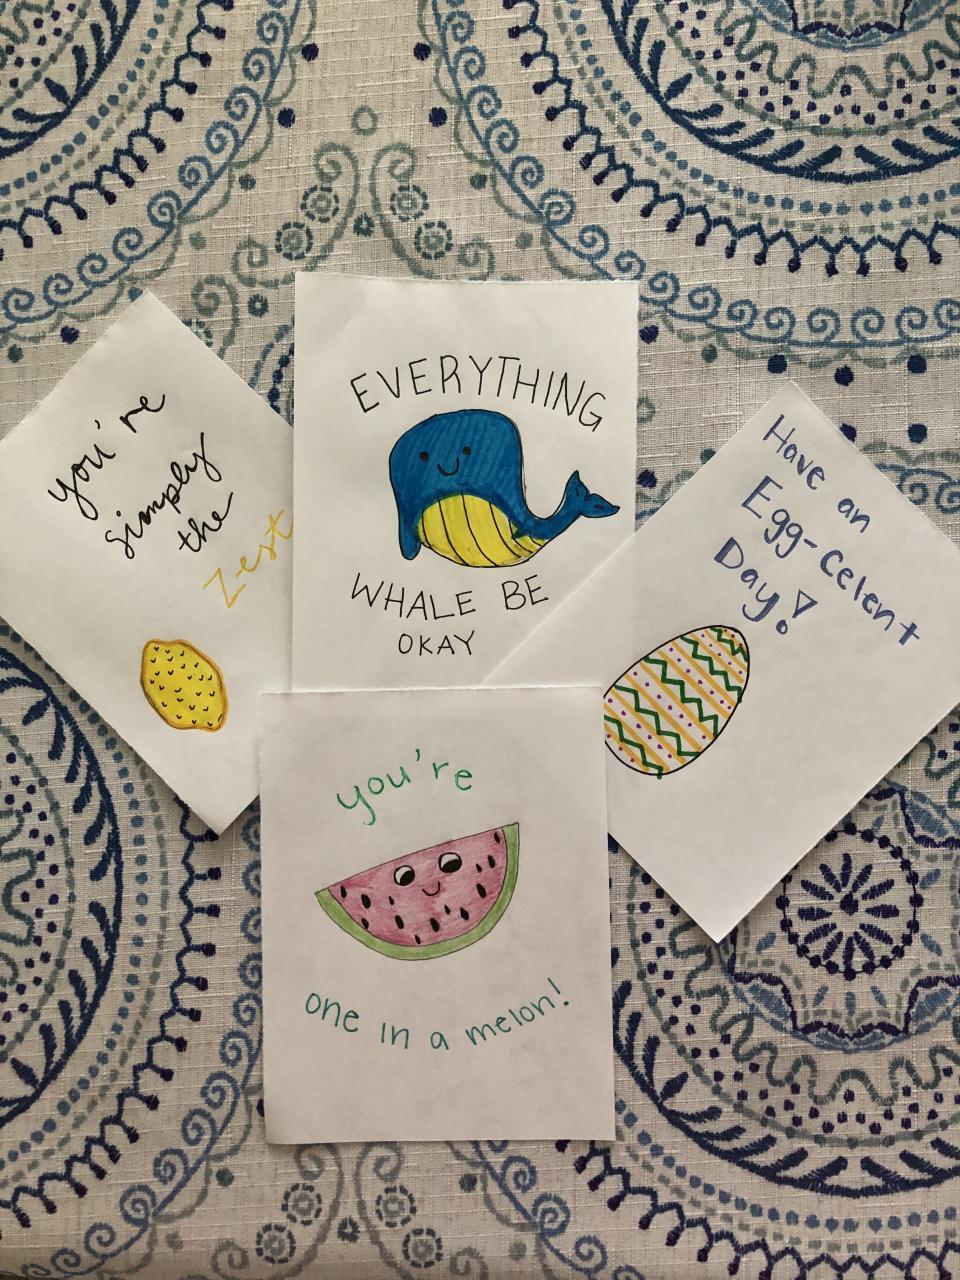 you're
simply
the
Zest
EVERYTHING
WHALE BE
OKAY
Have an
Egg-celent
Day!
you're
one in a melon!